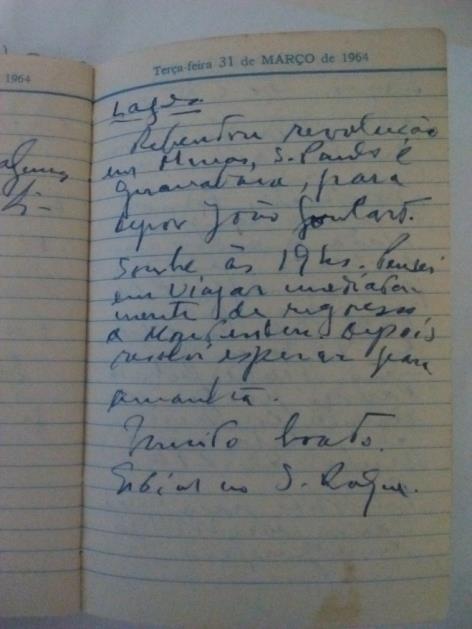 1964
Terça-feira 31 de MARÇO de 1964
Lages
Rebentou revolução
em Minas, S. Paulo e
Guanabara, para
depor João Goulart.
Soube às 19 hs. Pensei
em viajar imediata
mente de regresso
a Depois
resolvi esperar para
amanhã.
Muito boato.
no S. Roque.